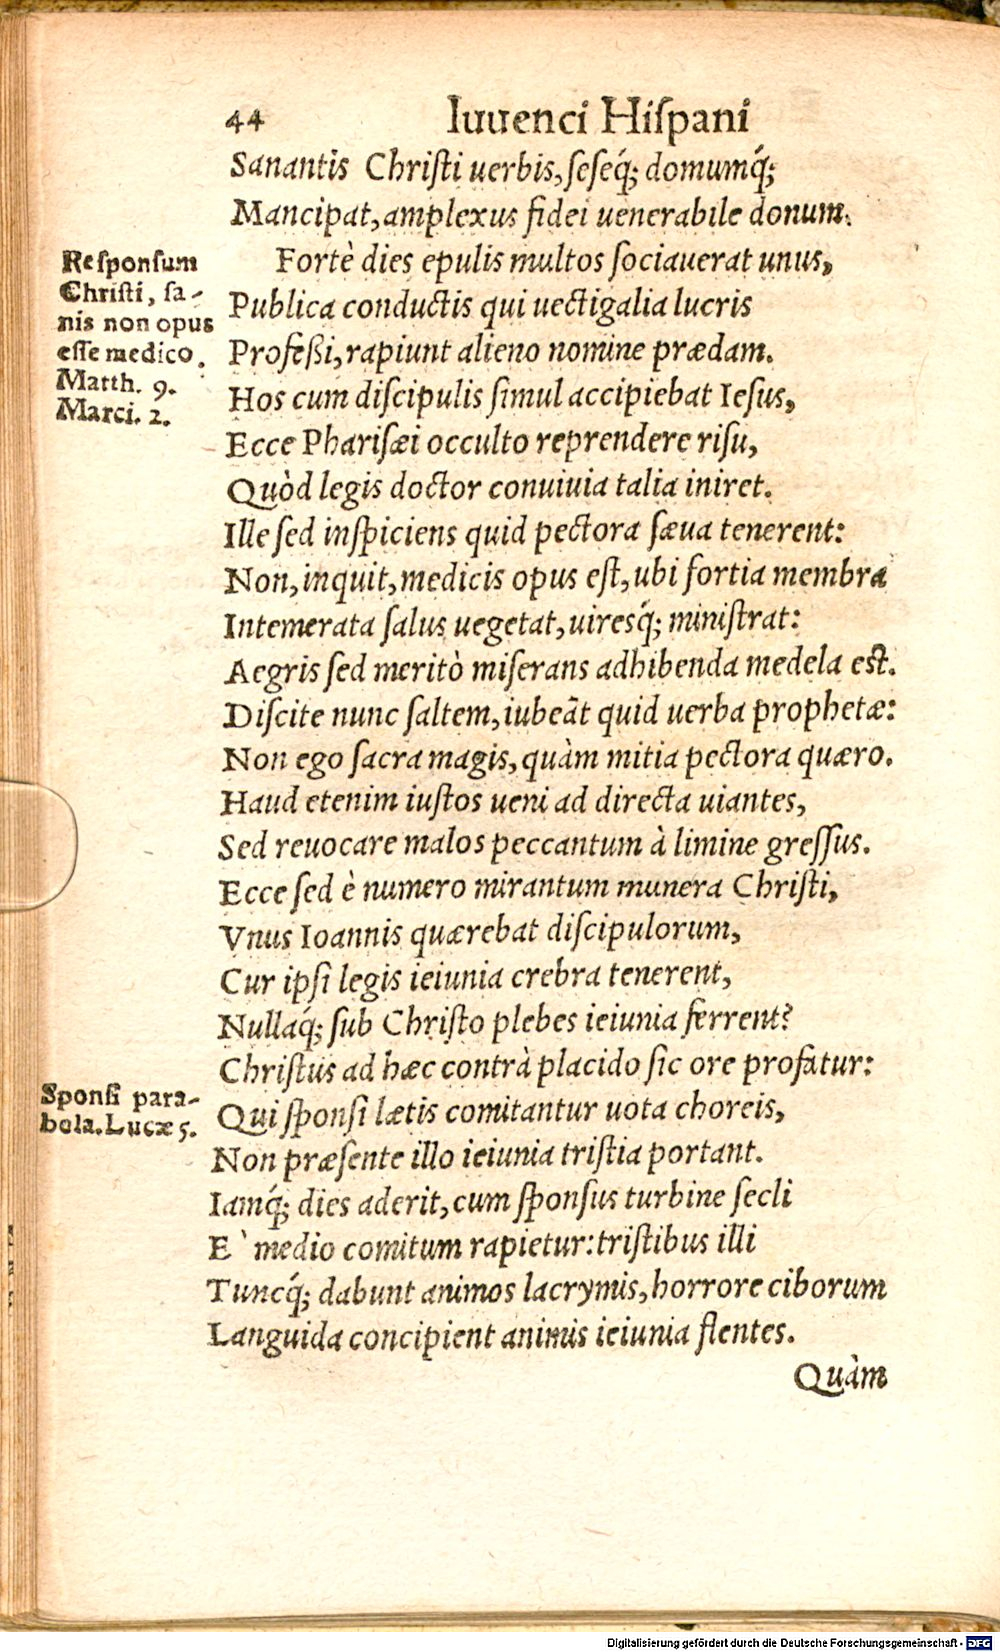 44 Iuuenci Hiſpani
Sanantis Chriſti uerbis, ſeſeq́; domumq́;
Mancipat, amplexus fidei uenerabile donum.
Fortè dies epulis multos ſociauerat unus,
Reſponſum
Chriſti, ſa-
nis non opus
eſſe medico.
Matth. 9.
Marci. 2.
Publica conductis qui uectigalia lucris
Profeßi, rapiunt alieno nomine prædam.
Hos cum diſcipulis ſimul accipiebat Ieſus,
Ecce Phariſæi occulto reprendere riſu,
Quòd legis doctor conuiuia talia iniret.
Ille ſed inſpiciens quid pectora ſæua tenerent:
Non, inquit, medicis opus eſt, ubi fortia membra
Intemerata ſalus uegetat, uiresq́; miniſtrat:
Aegris ſed meritò miſerans adhibenda medela eſt.
Diſcite nunc ſaltem, iubeãt quid uerba prophetæ:
Non ego ſacra magis, quàm mitia pectora quæro.
Haud etenim iuſtos ueni ad directa uiantes,
Sed reuocare malos peccantum à limine greſſus.
Ecce ſed è numero mirantum munera Chriſti,
Vnus Ioannis quærebat diſcipulorum,
Cur ipſi legis ieiunia crebra tenerent,
Nullaq́; ſub Chriſto plebes ieiunia ferrent?
Chriſtus ad hæc contrà placido ſic ore profatur:
Sponſi para-
bola. Lucæ 5.
Qui ſponſi lætis comitantur uota choreis,
Non præſente illo ieiunia triſtia portant.
Iamq́; dies aderit, cum ſponſus turbine ſecli
E` medio comitum rapietur: triſtibus illi
Tuncq́; dabunt animos lacrymis, horrore ciborum
Languida concipient animis ieiunia flentes.
Quàm
Digitalisierung gefördert durch die Deutsche Forschungsgemeinschaft - DFG